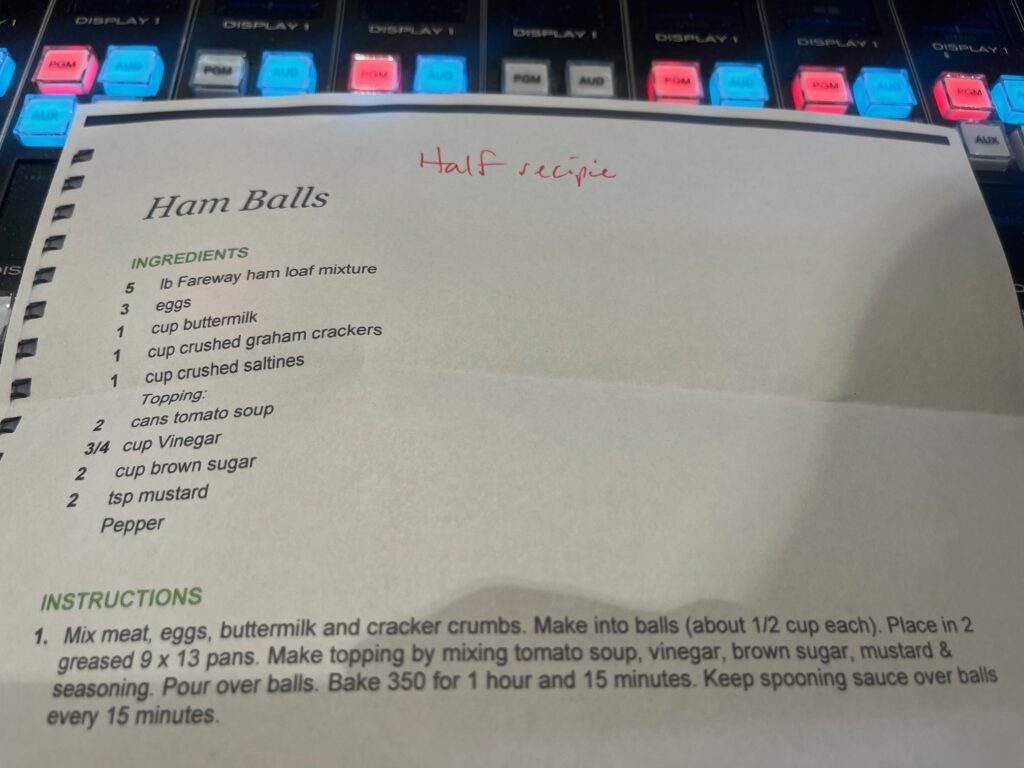 DISPLAY 1
DISPLAY 1
DISPLAY 1
DISPLAY 1
DISPLAY 1
DISPLAY 1
DISPLAY 1
PGM AUD PGM AUD PGM AUD PGM AUD PGM AUD PGM AUD PGM
AUX AUX
Half recipie
Ham Balls
INGREDIENTS
5 lb Fareway ham loaf mixture
3 eggs
1 cup buttermilk
1 cup crushed graham crackers
1 cup crushed saltines
Topping:
2 cans tomato soup
3/4 cup Vinegar
2 cup brown sugar
2 tsp mustard
Pepper
INSTRUCTIONS
1. Mix meat, eggs, buttermilk and cracker crumbs. Make into balls (about 1/2 cup each). Place in 2
greased 9 x 13 pans. Make topping by mixing tomato soup, vinegar, brown sugar, mustard &
seasoning. Pour over balls. Bake 350 for 1 hour and 15 minutes. Keep spooning sauce over balls
every 15 minutes.